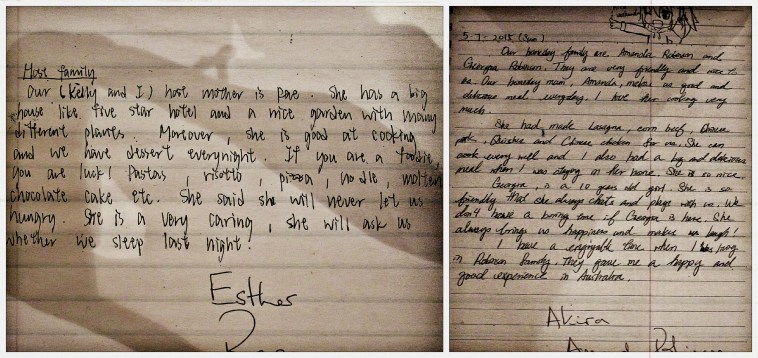 Host family
Our (Kelly and I) host mother is Pae. She has a big
house like five star hotel and a nice garden with many
different plants. Moreover, she is good at cooking
and we have dessert everynight. If you are a foodie,
you are luck! Pastas, risotto, pizza, nodle, molten
chocolate cake etc. She said she will never let us
hungry. She is a very caring, she will ask us
whether we sleep last night!
Esther
5-7-2015 (Sun)
Our homestay family are Amanda Robinson and
Georgia Robinson. They are very friendly and nice to
us. Our homestay mom, Amanda, makes us good and
delicious meal everyday. I love her cooking very
much.
She had made Lasagna, corn beef,
pork, and Chinese chicken for us. She can
cook very well and I also had a big and delicious
meal when I was staying in her home. She is so nice.
Georgia, is a 10 years old girl. She is so
friendly that she always chats and plays with us. We
don't have a boring time if Georgia is here. She
always brings us happiness and makes us laugh!
I have a enjoyable time when I was living
in Robinson family. They gave me a happy and
good experience in Australia.
Akira